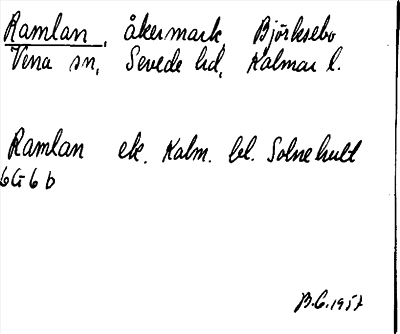 Ramlan, åkermark Björksebo
Vena sn, Sevede hd, Kalmar l.
Ramlan ek. Kalm. bl. Solnehult
6G6b
B.G. 1957